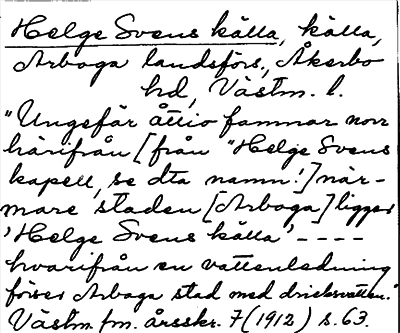 Helge Svens källa, källa,
Arboga landsförs, Åkerbo
hd, Västm. l.
"Ungefär åttio famnar norr
härifrån [från "Helge Svens
kapell, se dta namn!] när-
mare staden [Arboga] ligger
'Helge Svens källa' ----
hvarifrån en vattenledning
förser Arboga stad med dricksvatten."
Västm. fm. årsskr. 7 (1912) s. 63.